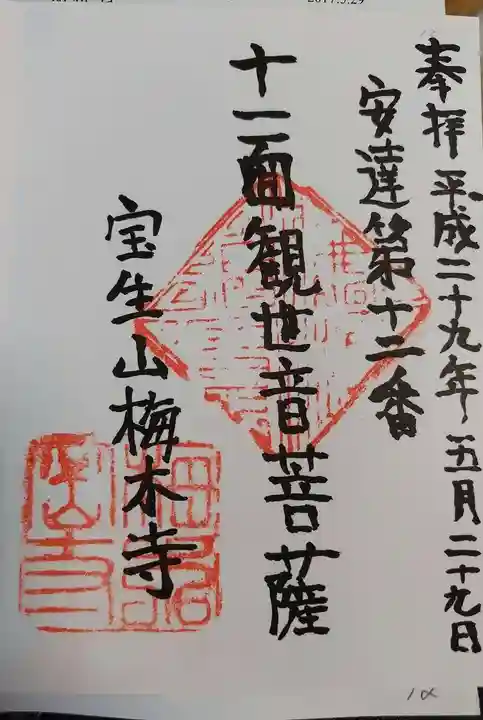 2017.5.29
奉拝 平成二十九年 五月二十九日
安達第十二番
十一面観世音菩薩
宝生山梅木寺